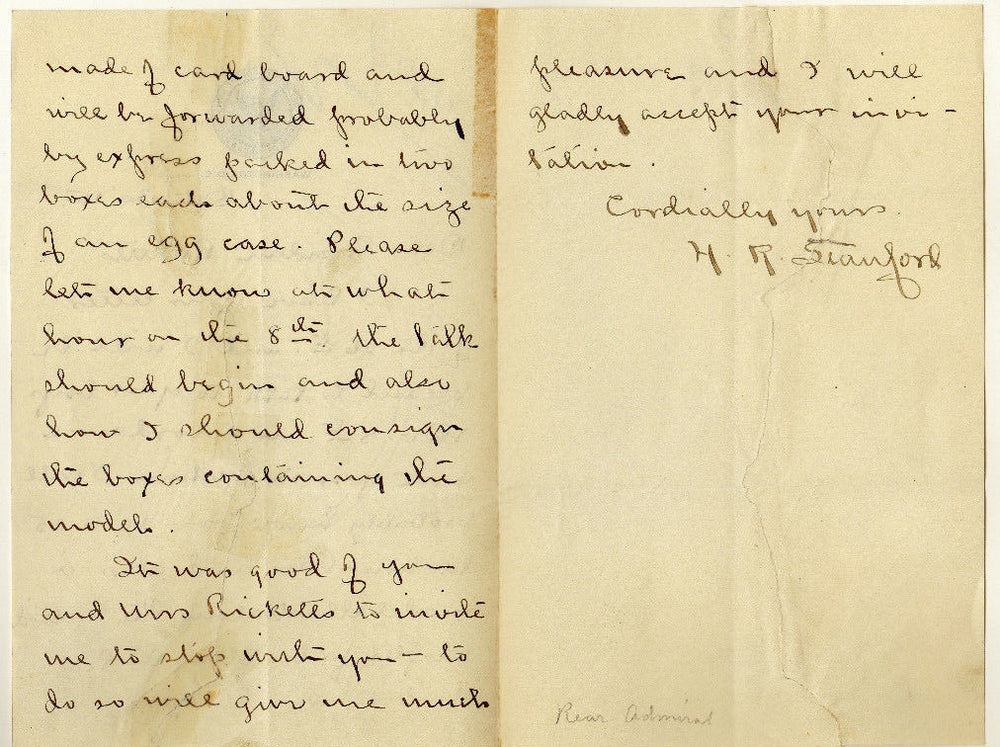 made of card board and
will be forwarded probably
by express packed in two
boxes each about the size
of an egg case. Please
let me know at what
hour on the 8th. the talk
should begin and also
how I should consign
the boxes containing the
models.
It was good of you
and Mrs Ricketts to invite
me to stop with you – to
do so will give me much
pleasure and I will
gladly accept your invi-
tation.
Cordially yours.
H. R. Stanford
Rear Admiral